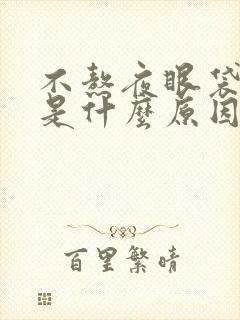 不熬夜眼袋
是什麼原因
百里繁晴